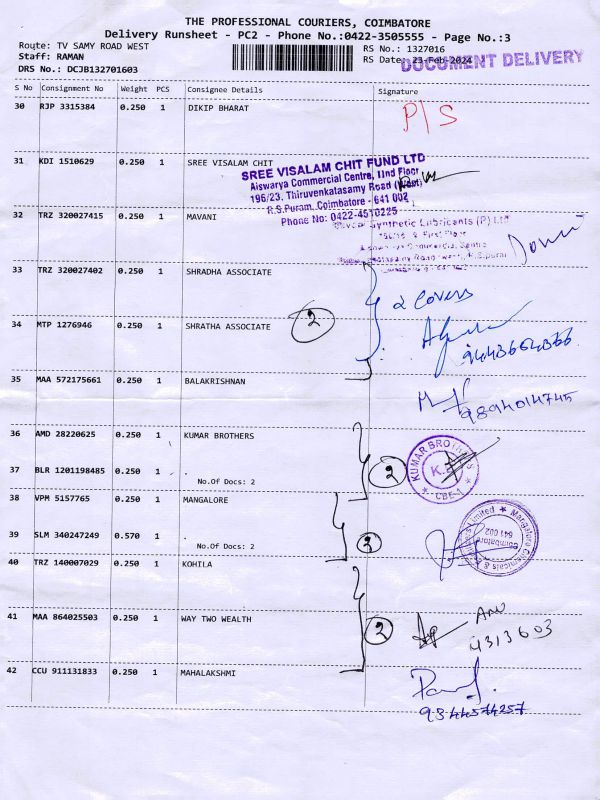 THE PROFESSIONAL COURIERS, COIMBATORE
Delivery Runsheet - PC2 - Phone No.:0422-3505555 - Page No.:3
Route: TV SAMY ROAD WEST RS No.: 1327016
Staff: RAMAN RS Date: 23-Feb-2024
DOCUMENT DELIVERY
DRS No.: DCJB132701603
S No Consignment No Weight PCS Consignee Details Signature
30 RJP 3315384 0.250 1 DIKIP BHARAT
P/S
31 KDI 1510629 0.250 1 SREE VISALAM CHIT
SREE VISALAM CHIT FUND LTD
Aiswarya Commercial Centre, IInd Floor
196/23, Thiruvenkatasamy Road (West)
R.S.Puram, Coimbatore - 641 002
Phone No: 0422-4510225
32 TRZ 320027415 0.250 1 MAVANI
Synthetic Lubricants (P) Ltd
33 TRZ 320027402 0.250 1 SHRADHA ASSOCIATE
2 Covers
34 MTP 1276946 0.250 1 SHRATHA ASSOCIATE
2
9443664366
35 MAA 572175661 0.250 1 BALAKRISHNAN
9894014745
36 AMD 28220625 0.250 1 KUMAR BROTHERS
KUMAR BROTHERS
CBE-1
37 BLR 1201198485 0.250 1 .
No.Of Docs: 2
2
38 VPM 5157765 0.250 1 MANGALORE
39 SLM 340247249 0.570 1 .
No.Of Docs: 2
2
Mangalore Chemicals & Fertilizers Limited
Coimbatore
641 002
40 TRZ 140007029 0.250 1 KOHILA
41 MAA 864025503 0.250 1 WAY TWO WEALTH
2
4313603
42 CCU 911131833 0.250 1 MAHALAKSHMI
9344574257